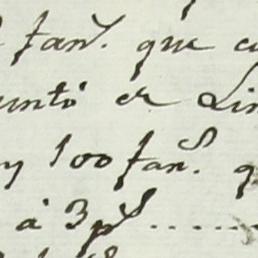 fan.s que
unto en Lin
y 100 fan.s q
á 3 p.s ......